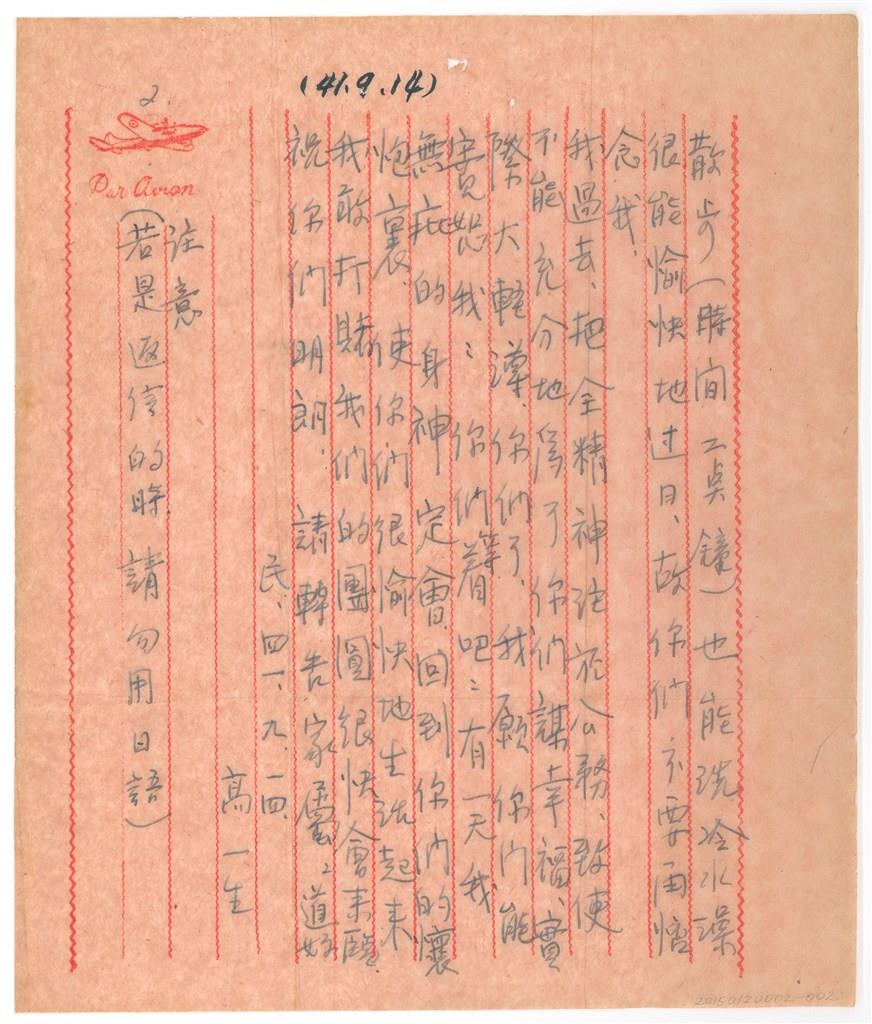 (41.9.14)
2.
Par Avion
散步(時间二点鐘)也能洗冷水澡
很能愉快地过日、故你們不要

念我、
我過去、把全精神注於公務、致使
不能充分地為了你們謀幸福、實
際大軽漢、你们了、我願你们能
寛恕我：你们等着吧：有一天我
無疵的身神定會回到你們的懷
抱裏、使你们很愉快地生活起来
我敢打賭我们的團圓很快會来臨.
祝你們明朗. 請轉告家屬、道好
民、四一、九、一四、
高一生
注意
(若是返信的時、請勿用日語)
20150120002-002